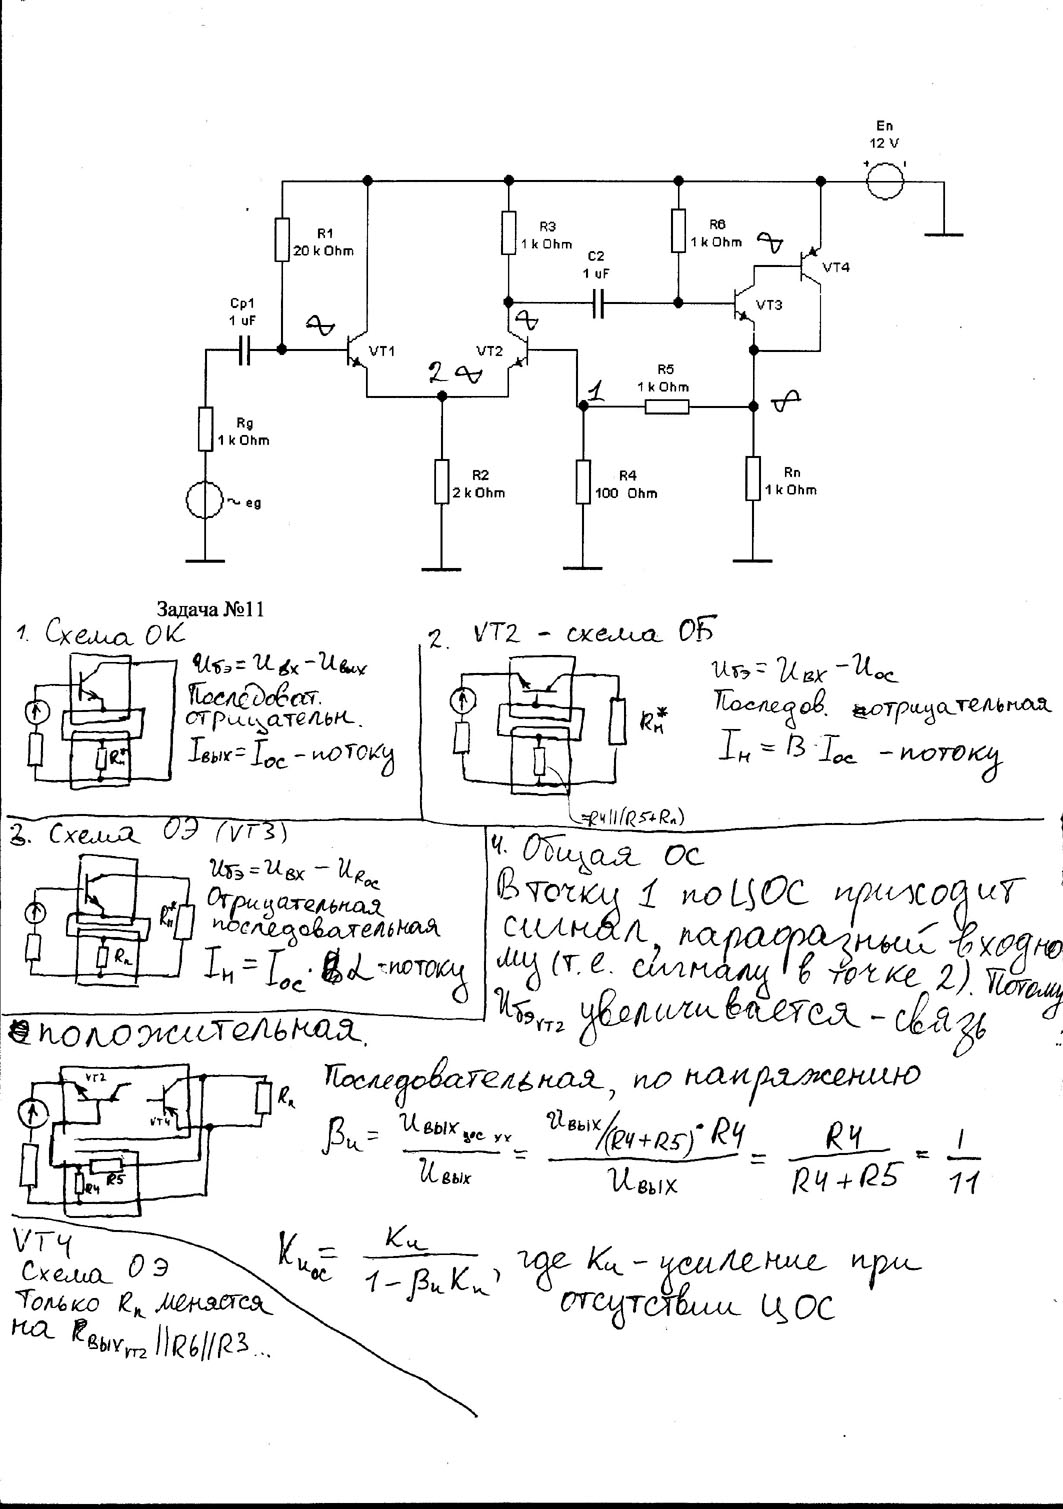 En
12 V
R1
20 k Ohm
R3
1 k Ohm
R6
1 k Ohm
C2
1 uF
VT4
VT3
Cp1
1 uF
VT1
VT2
2
1
R5
1 k Ohm
Rg
1 k Ohm
~ eg
R2
2 k Ohm
R4
100 Ohm
Rn
1 k Ohm
Задача №11
1. Схема ОК
Uбэ = Uвх - Uвых
Последоват.
отрицательн.
Iвых = Iос - потоку
Rн*
2. VT2 - схема ОБ
Uбэ = Uвх - Uос
Последов. отрицательная
Iн = B · Iос - потоку
Rн*
=R4||(R5+Rn)
3. Схема ОЭ (VT3)
Uбэ = Uвх - URос
Отрицательная
последовательная
Iн = Iос · α - потоку
Rн*
Rn
4. Общая ОС
В точку 1 по ЦОС приходит
сигнал, парафазный входно
му (т.е. сигналу в точке 2). Потому
Uбэ VT2 увеличивается - связь
положительная.
VT2
VT4
Rn
R4
R5
Последовательная, по напряжению
βu = Uвых цос хх / Uвых = Uвых/(R4+R5) · R4 / Uвых = R4 / R4+R5 = 1 / 11
VT4
Схема ОЭ
Только Rn меняется
на Rвых VT2 ||R6||R3...
Kuос = Ku / 1 - βu Ku, где Ku - усиление при
отсутствии ЦОС